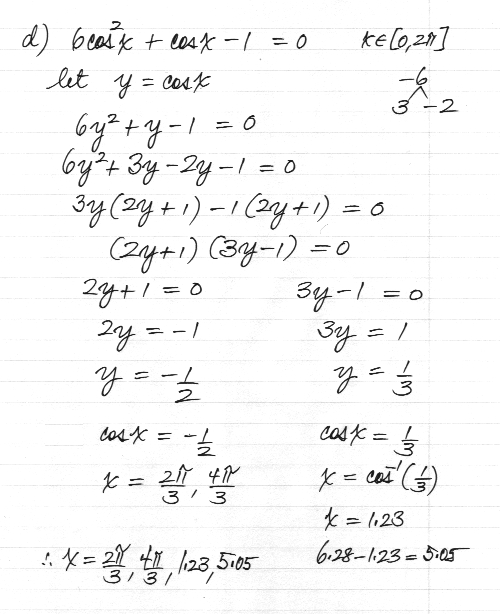 d) 6cos²x + cosx - 1 = 0 x∈[0,2π]
let y = cosx
-6
3 -2
6y² + y - 1 = 0
6y² + 3y - 2y - 1 = 0
3y(2y+1) - 1(2y+1) = 0
(2y+1)(3y-1) = 0
2y+1 = 0 3y-1 = 0
2y = -1 3y = 1
y = -1/2 y = 1/3
cosx = -1/2 cosx = 1/3
x = 2π/3, 4π/3 x = cos⁻¹(1/3)
x = 1.23
∴ x = 2π/3, 4π/3, 1.23, 5.05 6.28-1.23 = 5.05